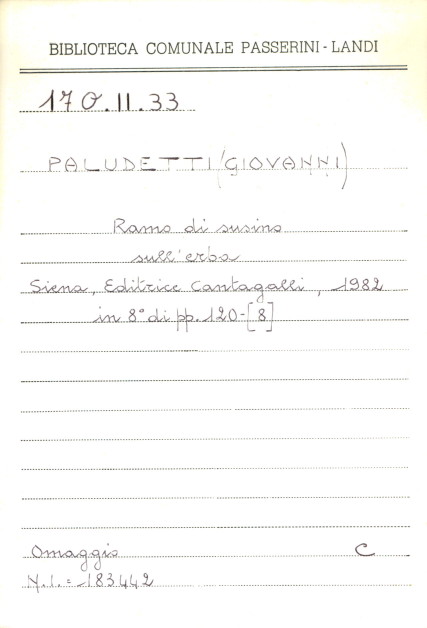 BIBLIOTECA COMUNALE PASSERINI - LANDI
170.II.33
PALUDETTI (GIOVANNI)
Ramo di susino
sull'erba
Siena, Editrice Cantagalli, 1982
in 8° di pp. 120-[8]
Omaggio C
N.I.= 183442